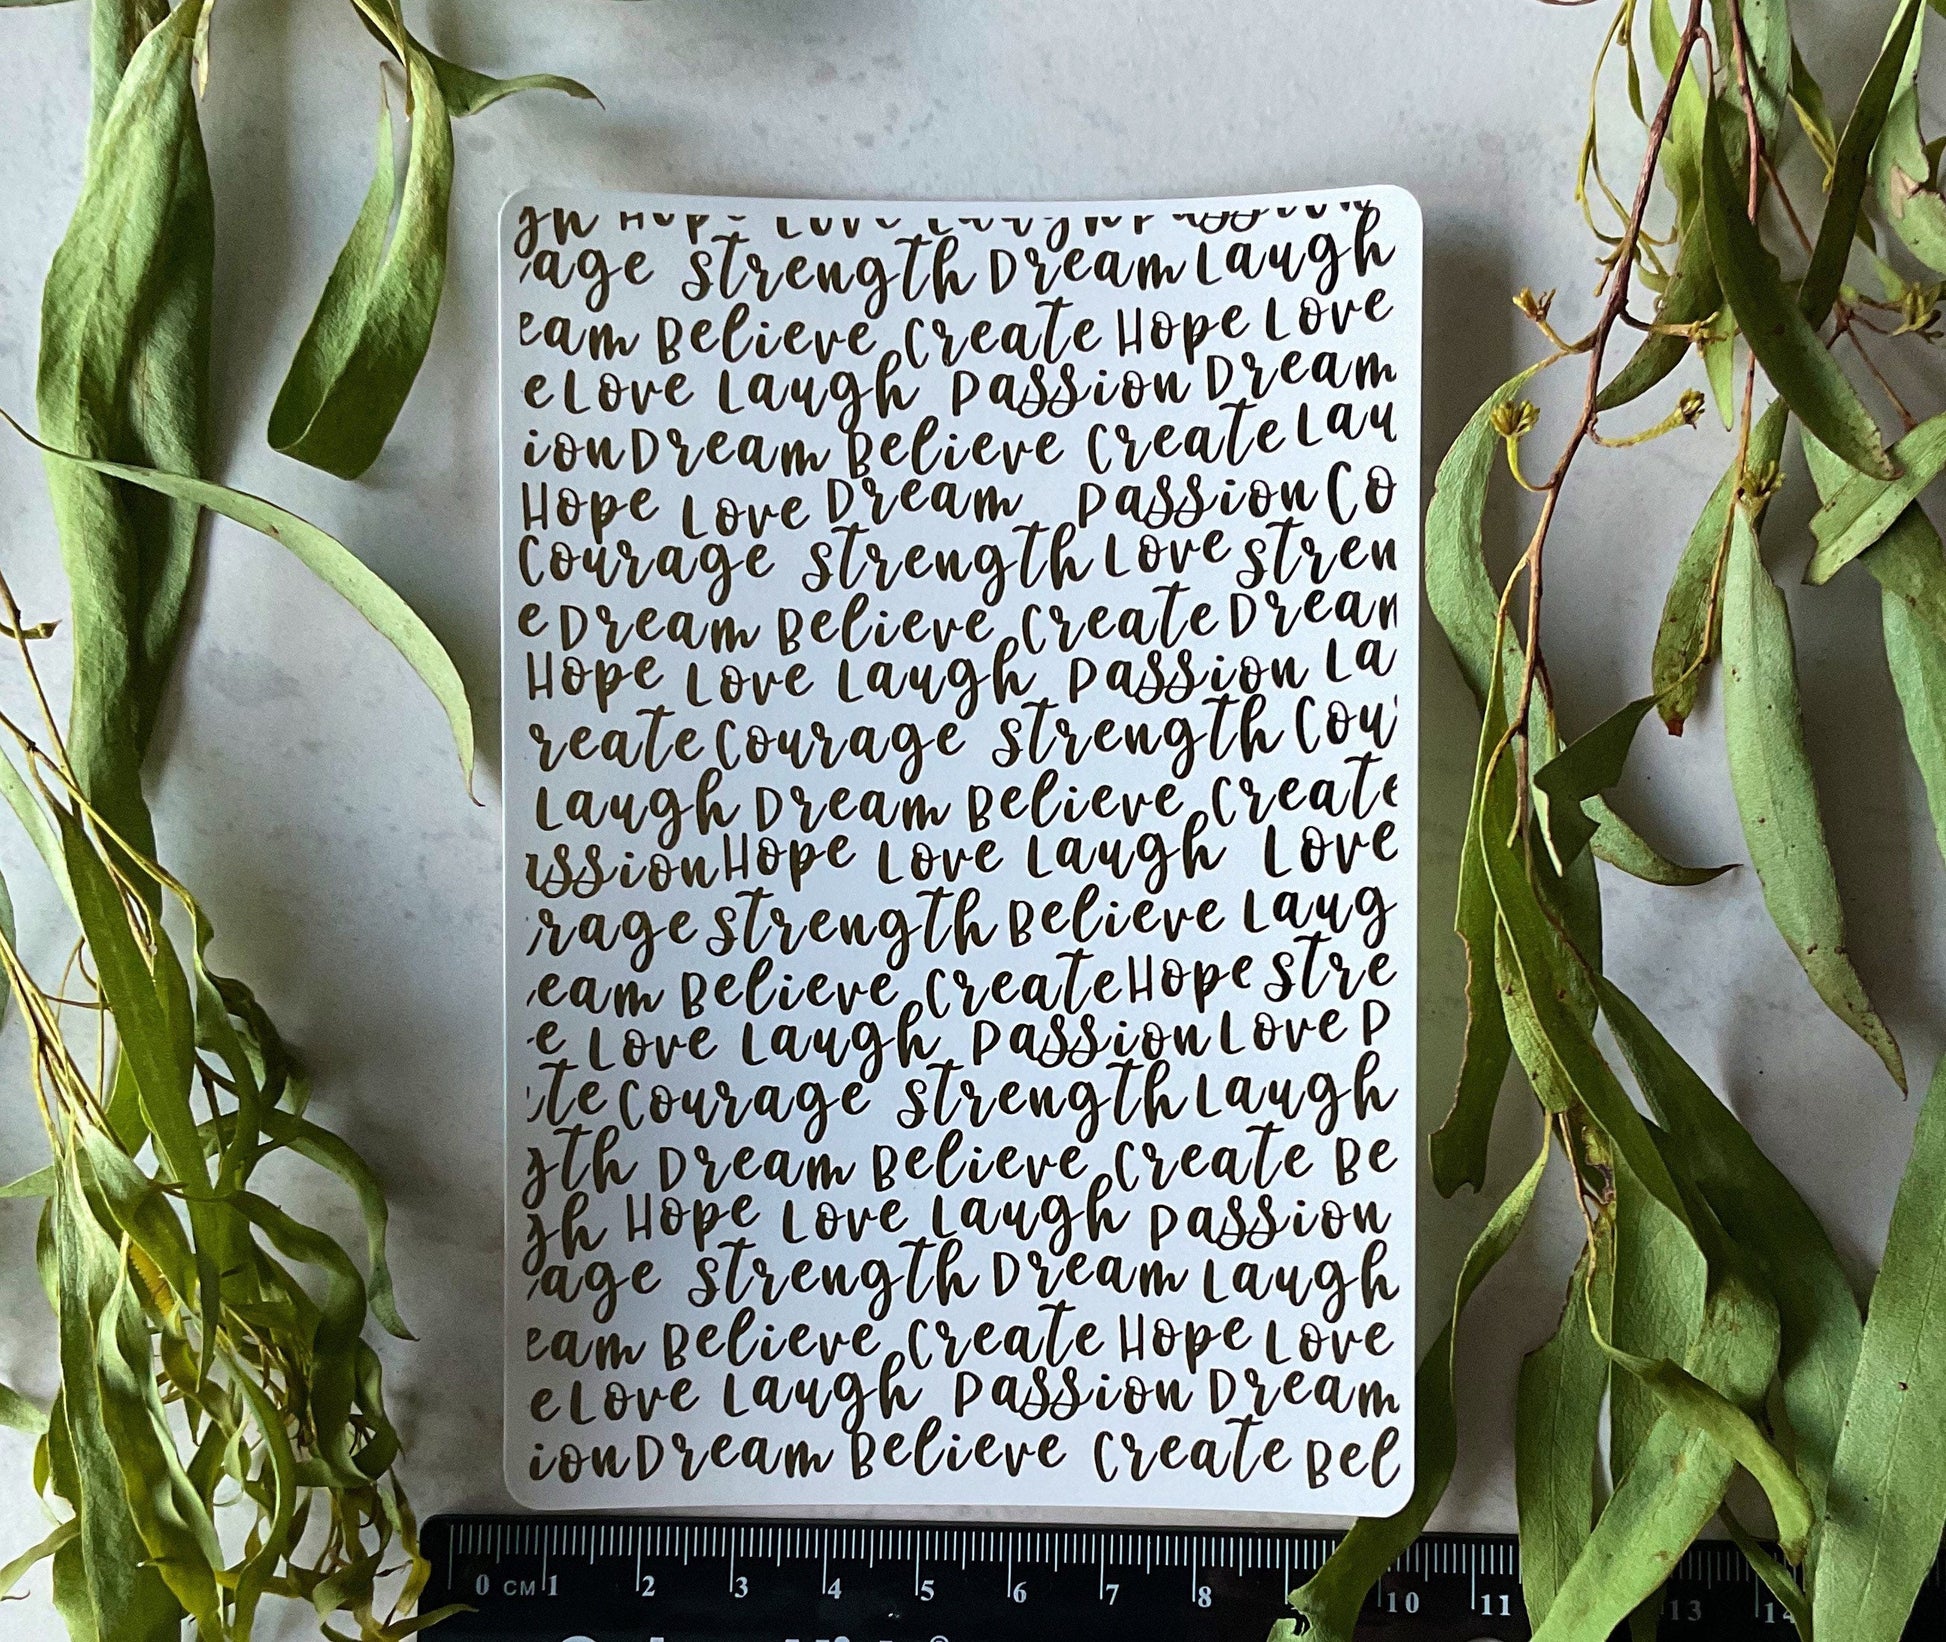 gh Hope Love Laugh Passion
age Strength Dream Laugh
eam Believe Create Hope Love
e Love Laugh Passion Dream
ion Dream Believe Create Lau
Hope Love Dream Passion Co
Courage Strength Love Stren
e Dream Believe Create Dream
Hope Love Laugh Passion La
reate Courage Strength Cou
Laugh Dream Believe Create
ssion Hope Love Laugh Love
rage Strength Believe Laug
eam Believe Create Hope Stre
e Love Laugh Passion Love P
te Courage Strength Laugh
gth Dream Believe Create Be
gh Hope Love Laugh Passion
age Strength Dream Laugh
eam Believe Create Hope Love
e Love Laugh Passion Dream
ion Dream Believe Create Bel
0 CM 1 2 3 4 5 6 7 8 10 11 13 14